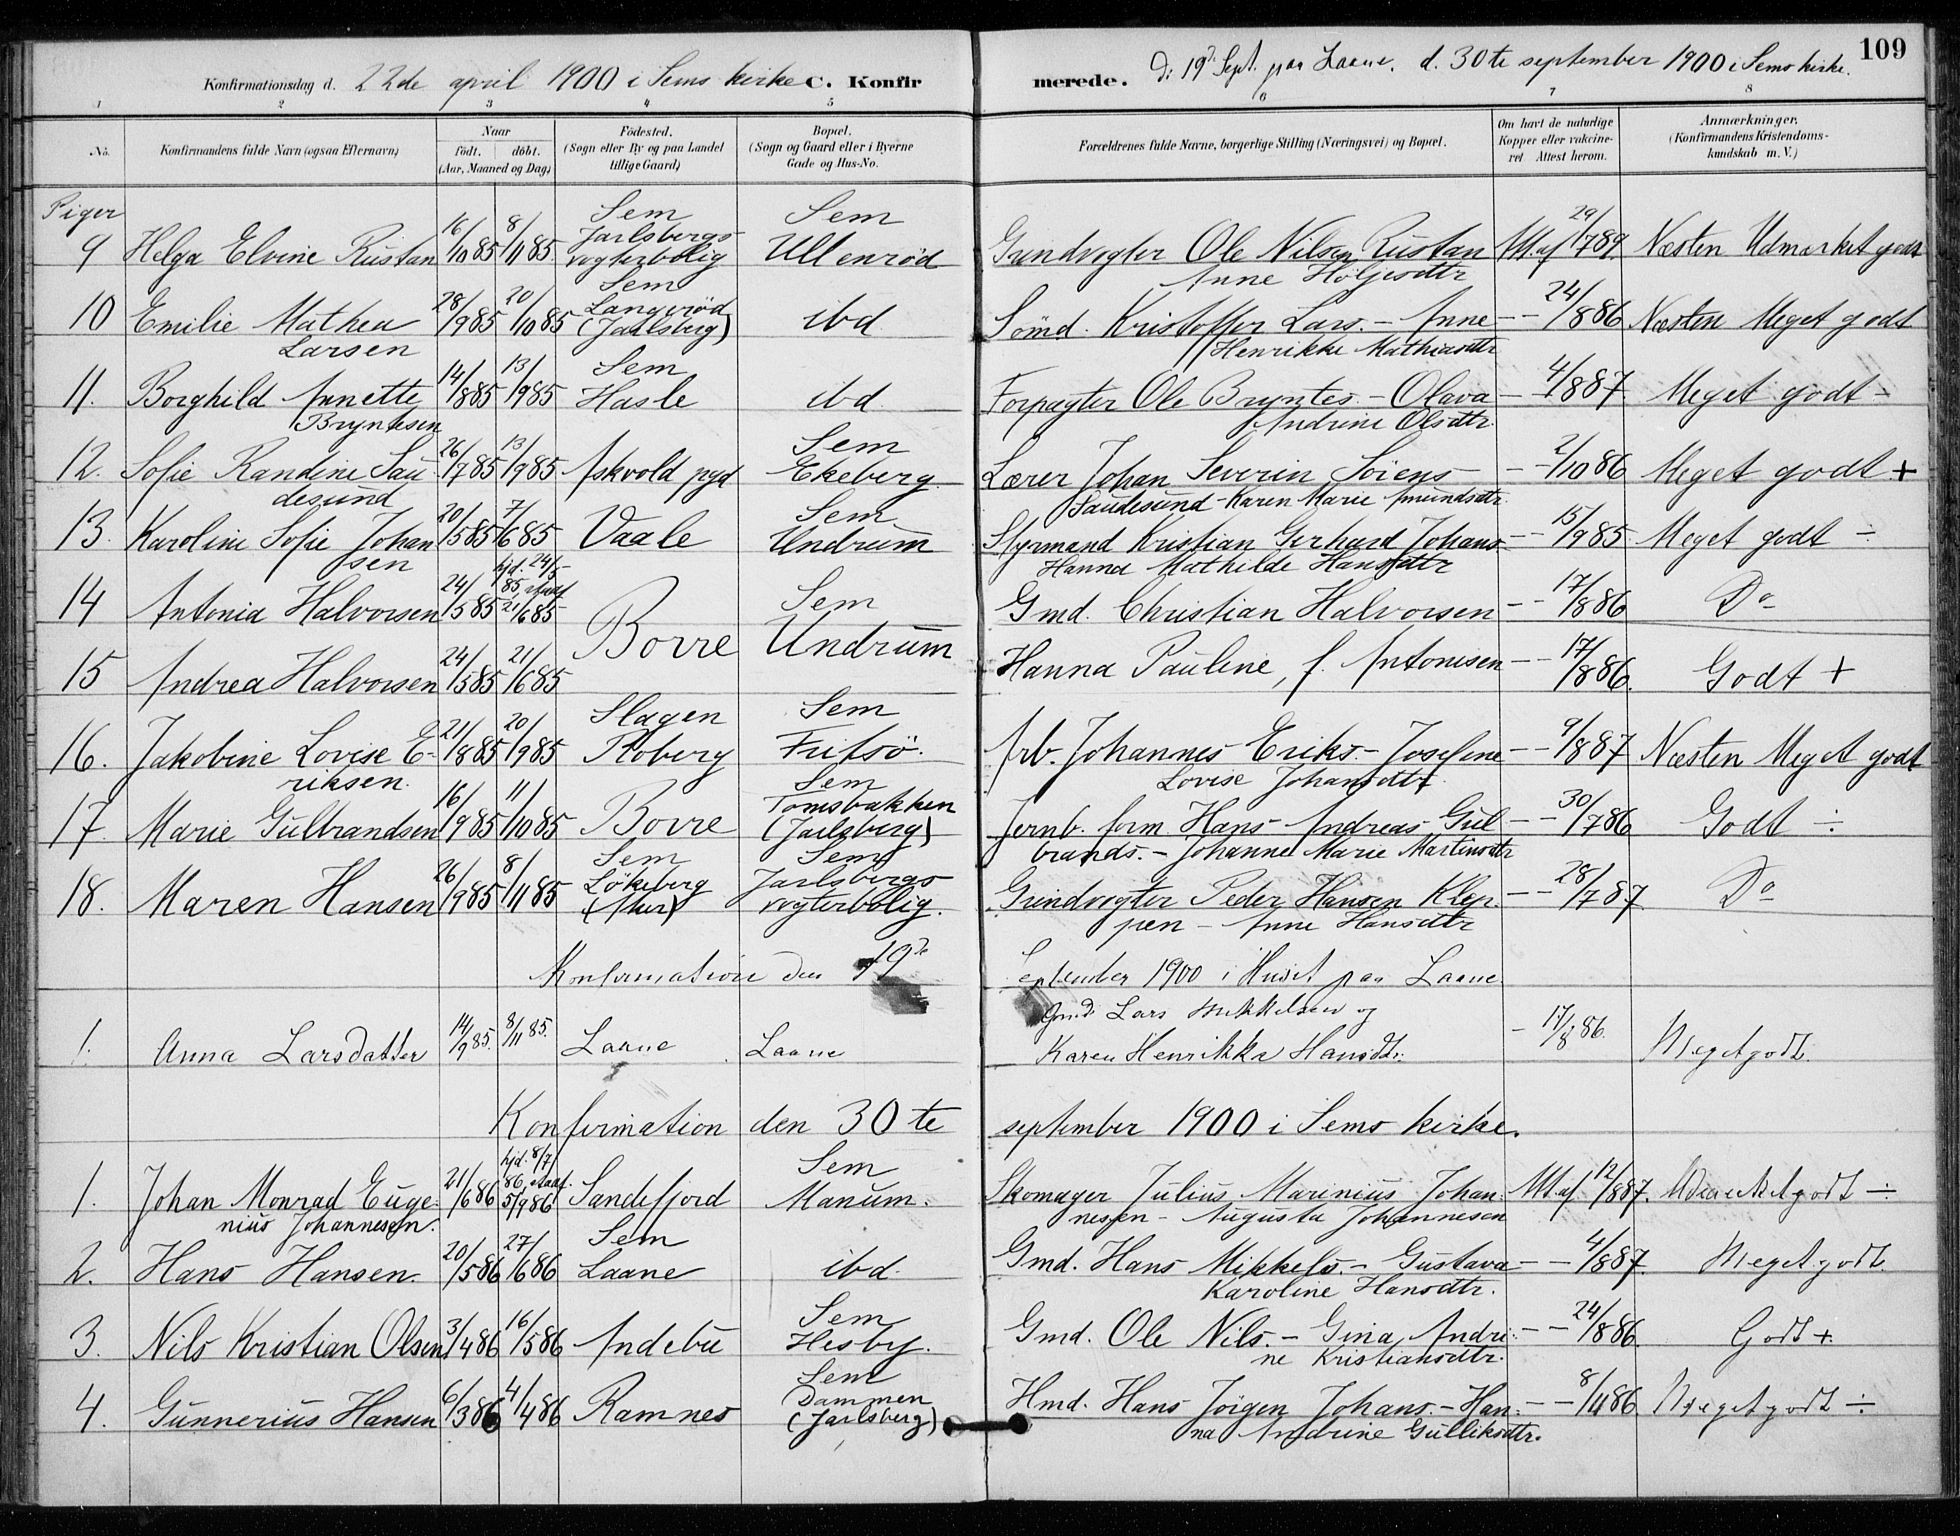 109
Konfirmationsdag d. 22de april 1900 i Sems kirke C. Konfirmerede. D: 19de Sept. paa Laane. d. 30te september 1900 i Sems kirke.
1 2 3 4 5 6 7 8
No.
Konfirmandens fulde Navn (ogsaa Efternavn)
Naar
født. døbt.
(Aar, Maaned og Dag)
Fødested.
(Sogn eller By og paa Landet
tillige Gaard)
Bopæl.
(Sogn og Gaard eller i Byerne
Gade og Hus-No.
Forældrenes fulde Navne, borgerlige Stilling (Næringsvei) og Bopæl.
Om havt de naturlige
Kopper eller vakcine-
ret Attest herom.
Anmærkninger.
(Konfirmandens Kristendoms-
kundskab m. V.)
Piger
Sem Sem
9 Helga Elvine Rustan 16/10 85 8/11 85 Jarlsbergs vogterbolig Ullenrød Grundvogter Ole Nilsen Rustan Att. af 29/7 89. Næsten Udmærket godt
Anne Holjesdtr
Sem
10 Emilie Mathea 28/9 85 20/10 85 Langerød (Jarlsberg) ibd Sömd. Kristoffer Lars. - Anne - - 24/8 86 Næsten Meget godt
Larsen Henrikke Mathiasdtr
Sem
11. Borghild Annette 14/8 85 13/9 85 Hasle ibd. Forpagter Ole Bryntes. - Olava - - 4/8 87. Meget godt -
Bryntesen Andrine Olsdtr.
Sem
12. Sofie Randine Sau- 26/7 85 13/9 85 Askvold pgd Ekeberg. Lærer Johan Severin Soiens - - 2/10 86 Meget godt +
desund Saudesund - Karen Marie Amundsdtr.
Sem
13. Karoline Sofie Johan 20/5 85 7/6 85 Vaale Undrum Styrmand Kristian Gerhard Johans - - 15/9 85. Meget godt ÷
sen Hanna Mathilde Hansdtr
hjd. 24/5 85, stadf. Sem
14 Antonia Halvorsen 24/5 85 21/6 85 Borre Undrum Gmd. Christian Halvorsen - - 17/8 86 Do
15 Andrea Halvorsen 24/5 85 21/6 85 Hanna Pauline, f. Antonisen - - 17/8 86. Godt +
Slagen Sem
16. Jakobine Lovise E- 21/8 85 20/9 85 Roberg Fritsö. Arb. Johannes Eriks. - Josefine - - 9/8 87 Næsten Meget godt
riksen. Lovise Johansdtr.
Sem
17. Marie Gulbrandsen 16/9 85 11/10 85 Borre Tomsbakken (Jarlsberg) Jernb. form. Hans Andreas Gul - - 30/7 86 Godt ÷
brands. - Johanne Marie Martinsdtr
Sem Sem
18. Maren Hansen 26/9 85 8/11 85 Lökeberg (Aker) Jarlsbergs vogterbolig. Grindvogter Peder Hansen Klep- - - 28/7 87. Do
pen - Anne Hansdtr
Konfirmation den 19de September 1900 i Huset paa Laane.
Gmd. Lars Mikkelsen og
1. Anna Larsdatter 14/9 85. 8/11 85. Laane Laane Karen Henrikke Hansdtr. - 17/8 86. Meget godt.
Konfirmation den 30te september 1900 i Sems kirke.
hjd. 8/7 86, stadf. Sem
1. Johan Monrad Euge- 21/6 86 5/9 86 Sandefjord Manum. Skomager Julius Marinius Johan- Att. af 12/8 87. Udmerket godt ÷
nius Johannesen. nessen - Augusta Johannesen
Sem
2. Hans Hansen. 20/5 86 27/6 86 Laane ibd. Gmd. Hans Mikkels. - Gustava - - 4/8 87. Meget godt.
Karoline Hansdtr.
Sem
3. Nils Kristian Olsen 3/4 86 16/5 86 Andebu Hesby. Gmd. Ole Nils. - Gina Andri- - - 24/8 86. Godt +
ne Kristiansdtr.
Sem
4. Gunnerius Hansen 6/3 86 4/4 86 Ramnes Dammen (Jarlsberg) Hmd. Hans Jörgen Johans. - Han- - - 8/4 86. Meget godt ÷
na Andrine Gulliksdtr.